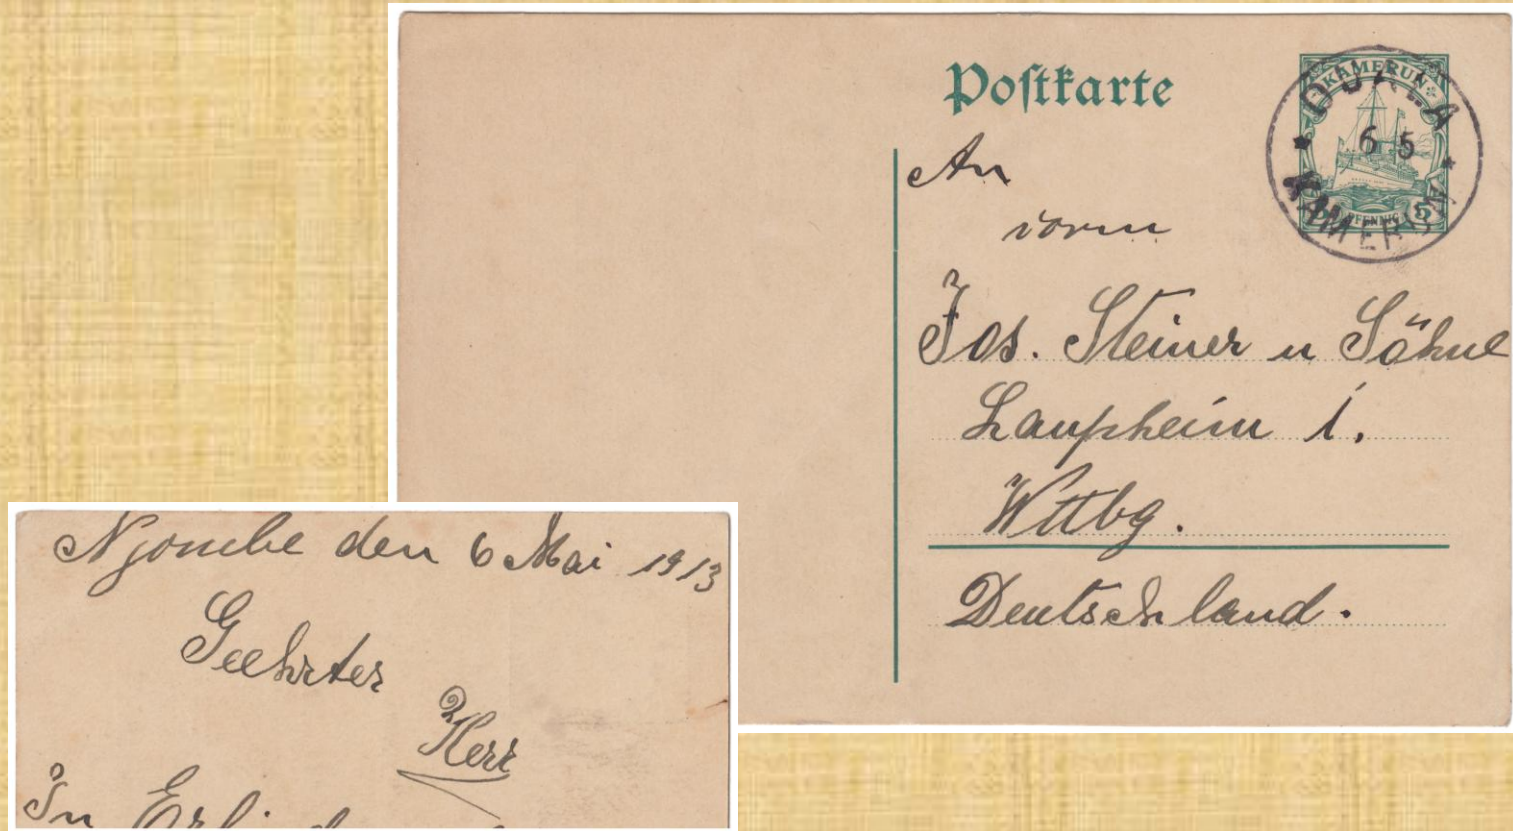 Postkarte
KAMERUN
5 PFENNIG 5
DUALA
6 5
KAMERUN
An
vorm
Jos. Steiner u Söhne
Laupheim i.
Wttbg.
Deutschland.
Njombe den 6 Mai 1913
Geehrter
Herr
In